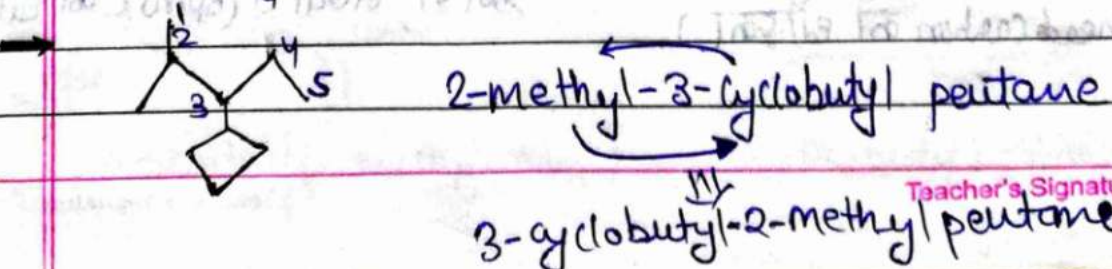 1
2
4
3
5
2-methyl-3-cyclobutyl pentane
Teacher's Signatu
3-cyclobutyl-2-methyl pentane